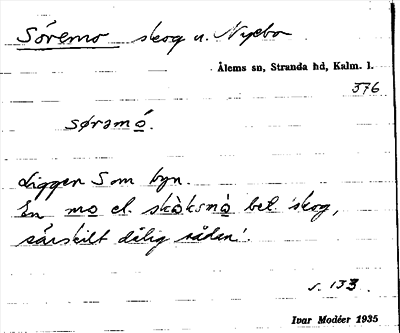 Söremo skog u. Nyebo
Ålems sn, Stranda hd, Kalm. l.
376
sørəmó.
Ligger S om byn.
En mo el. skòksmò bet. 'skog,
särskilt dålig sådan'.
s. 153.
Ivar Modéer 1935